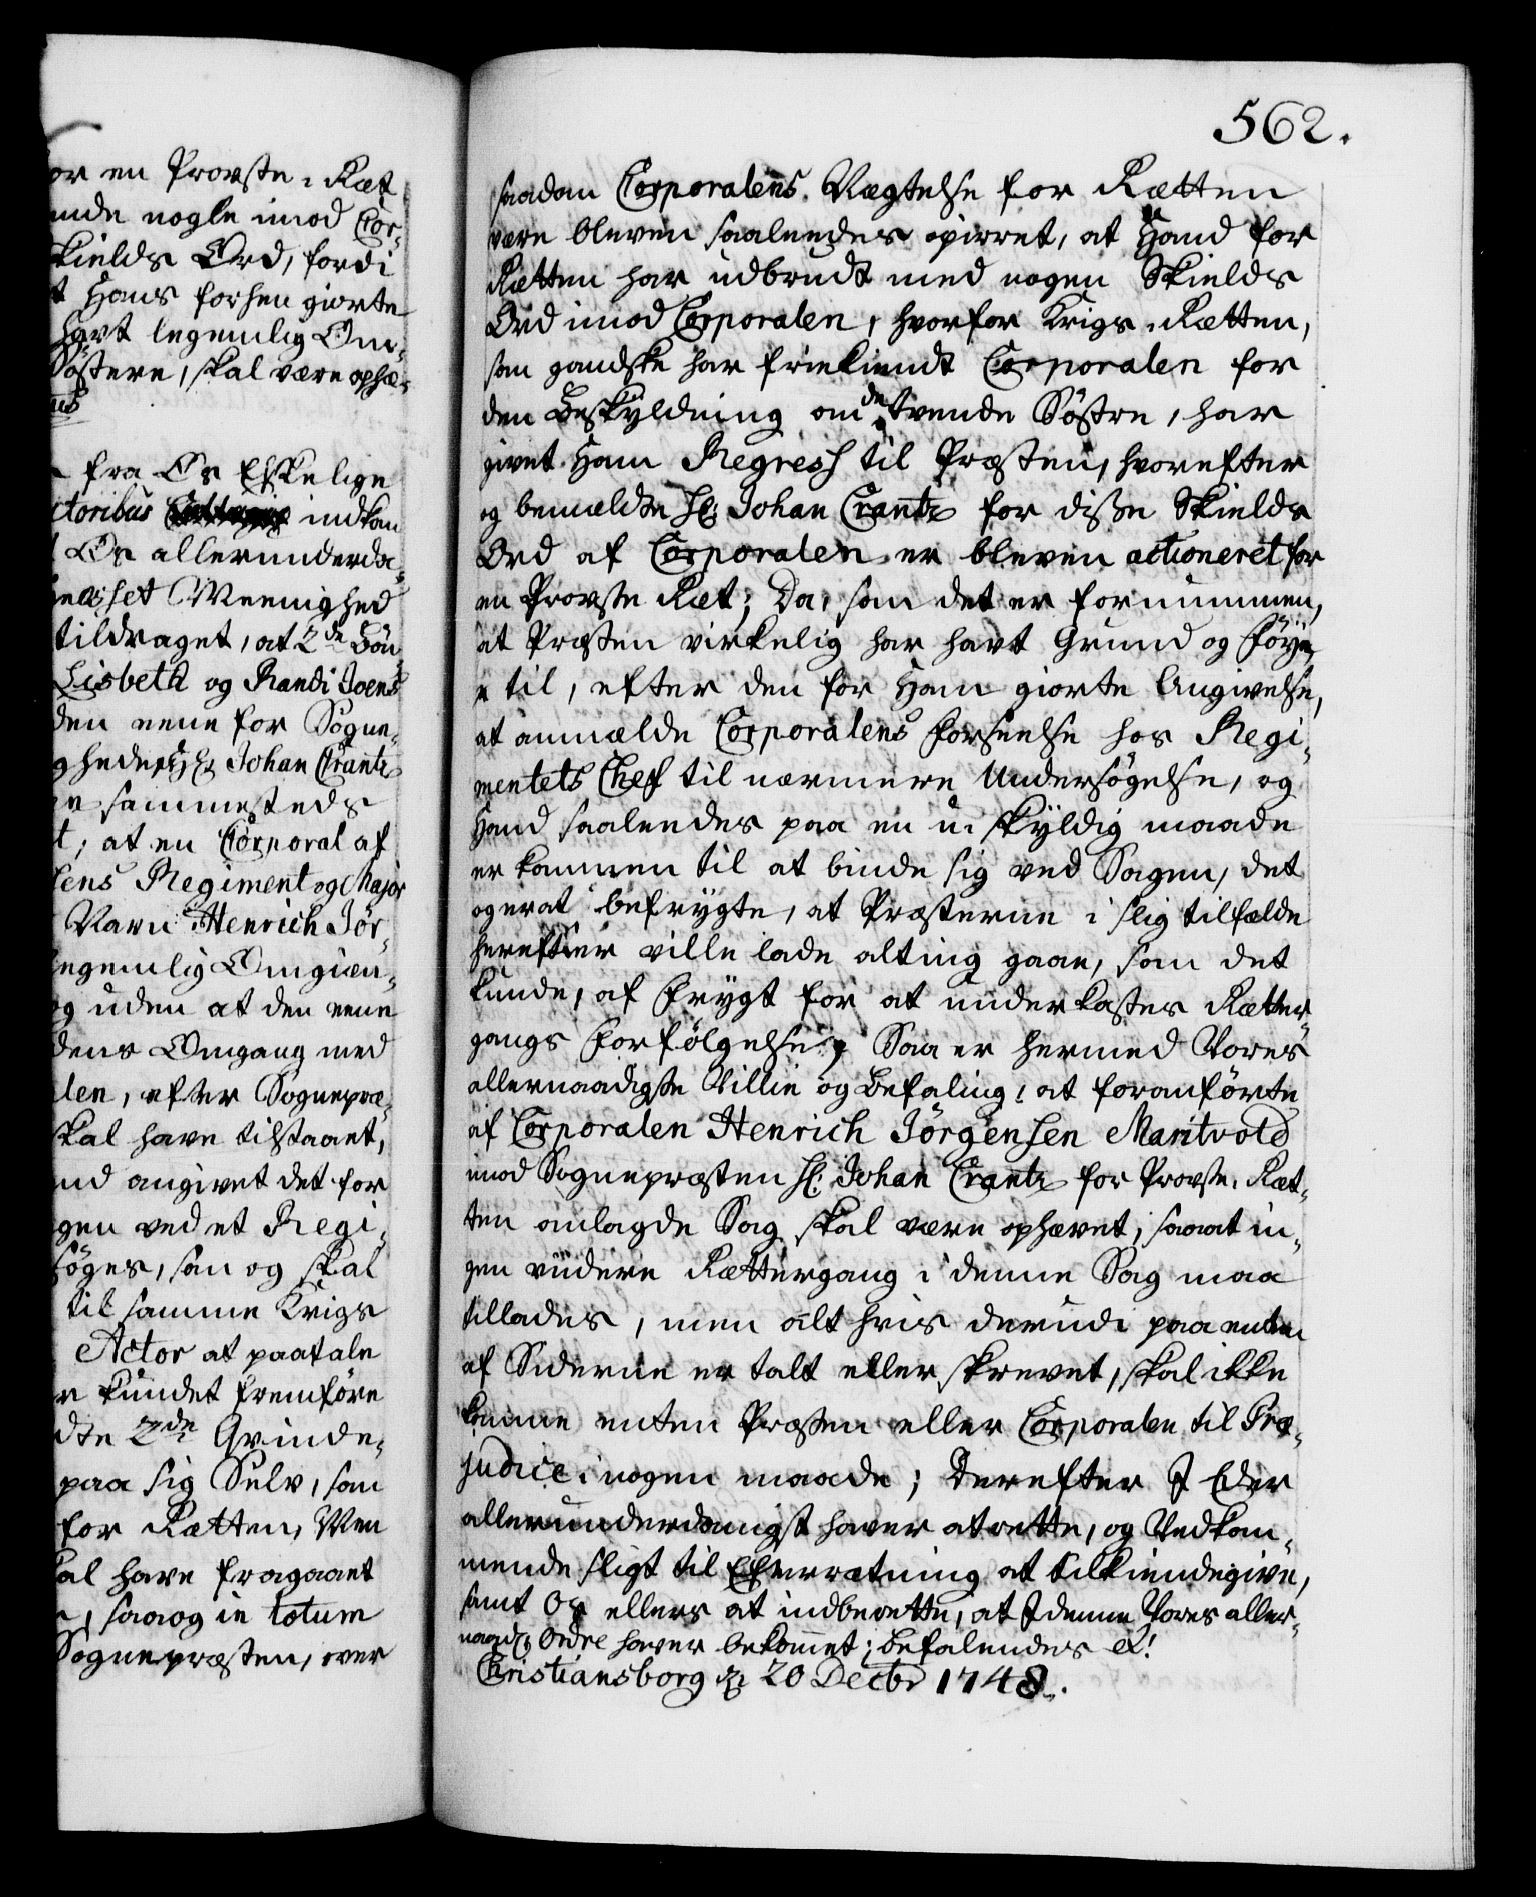 or en Provste-Ret
ende nogle imod Cor-
kields Ord, fordi
t Hans forhen giorte
havt legemlig Om-
Söstere, skal være ophæ-
fra Os Elskelige
ctoribus indkom
Os allerunderda-
Meenighed
tildraget, at 2de
Lisbeth og Randi Joens
den eene for Sogne-
Hr: Johan Crantz
sammesteds
t, at en Corporal af
lens Regiment og Major
Navn Henrich Jör-
legemlig Omgiæn-
og uden at den eene
dens Omgang med
len, efter Sognepræ-
skal have tilstaaet,
nd angivet det for
gen ved et Regi-
söges, som og skal
til samme Krigs
Actor at paatale
kundet fremföre
dte 2de Qvinde-
paa sig Selv, som
for Rætten, Men
kal have fragaaet
saa og in totum
Sognepræsten, over
562.
saadan Corporalens Nægtelse for Rætten
være bleven saaleedes opirret, at Hand for
Rætten har udbrudt med nogen Skields
Ord imod Corporalen, hvorfor Krigs-Rætten,
som gandske har friekiendt Corporalen for
den Beskyldning om de tvende Söstre, har
givet Ham Regress til Præsten, hvorefter
og bemældte Hr: Johan Crantz for disse Skields
Ord af Corporalen er bleven actioneret for
en Provste Ræt; Da, som det er fornummen,
at Præsten virkelig har havt Grund og Föye
til, efter den for Ham giorte Angivelse,
at anmælde Corporalens Forseelse hos Regi-
mentets Chef til nærmere Undersögelse, og
Hand saaleedes paa en uskyldig maade
er kommen til at binde sig ved Sagen, det
og er at befrygte, at Præsterne i slig tilfælde
herefter ville lade alting gaae, som det
kunde, af Frygt for at underkastes Rætter-
gangs Forfölgelse; Saa er hermed Vores
allernaadigste Villie og Befaling, at foranförte
af Corporalen Henrich Jörgensen Maritvold
imod Sognepræsten Hr: Johan Crantz for Provste-Ræt-
ten anlagde Sag skal være ophævet, saa at in-
gen viidere Rættergang i denne Sag maa
tillades, men alt hvis derudi paa enten
af Siderne er talt eller skrevet, skal ikke
komme enten Præsten eller Corporalen til Præ-
judice i nogen maade; Derefter I Eder
allerunderdanigst haver at rette, og Vedkom-
mende sligt til Efterrætning at tilkiendegive,
samt Os ellers at indberette, at I denne Vores aller-
naadigste Ordre haver bekommet; Befalendes &!
Christiansborg d: 20 Decbr 1748.